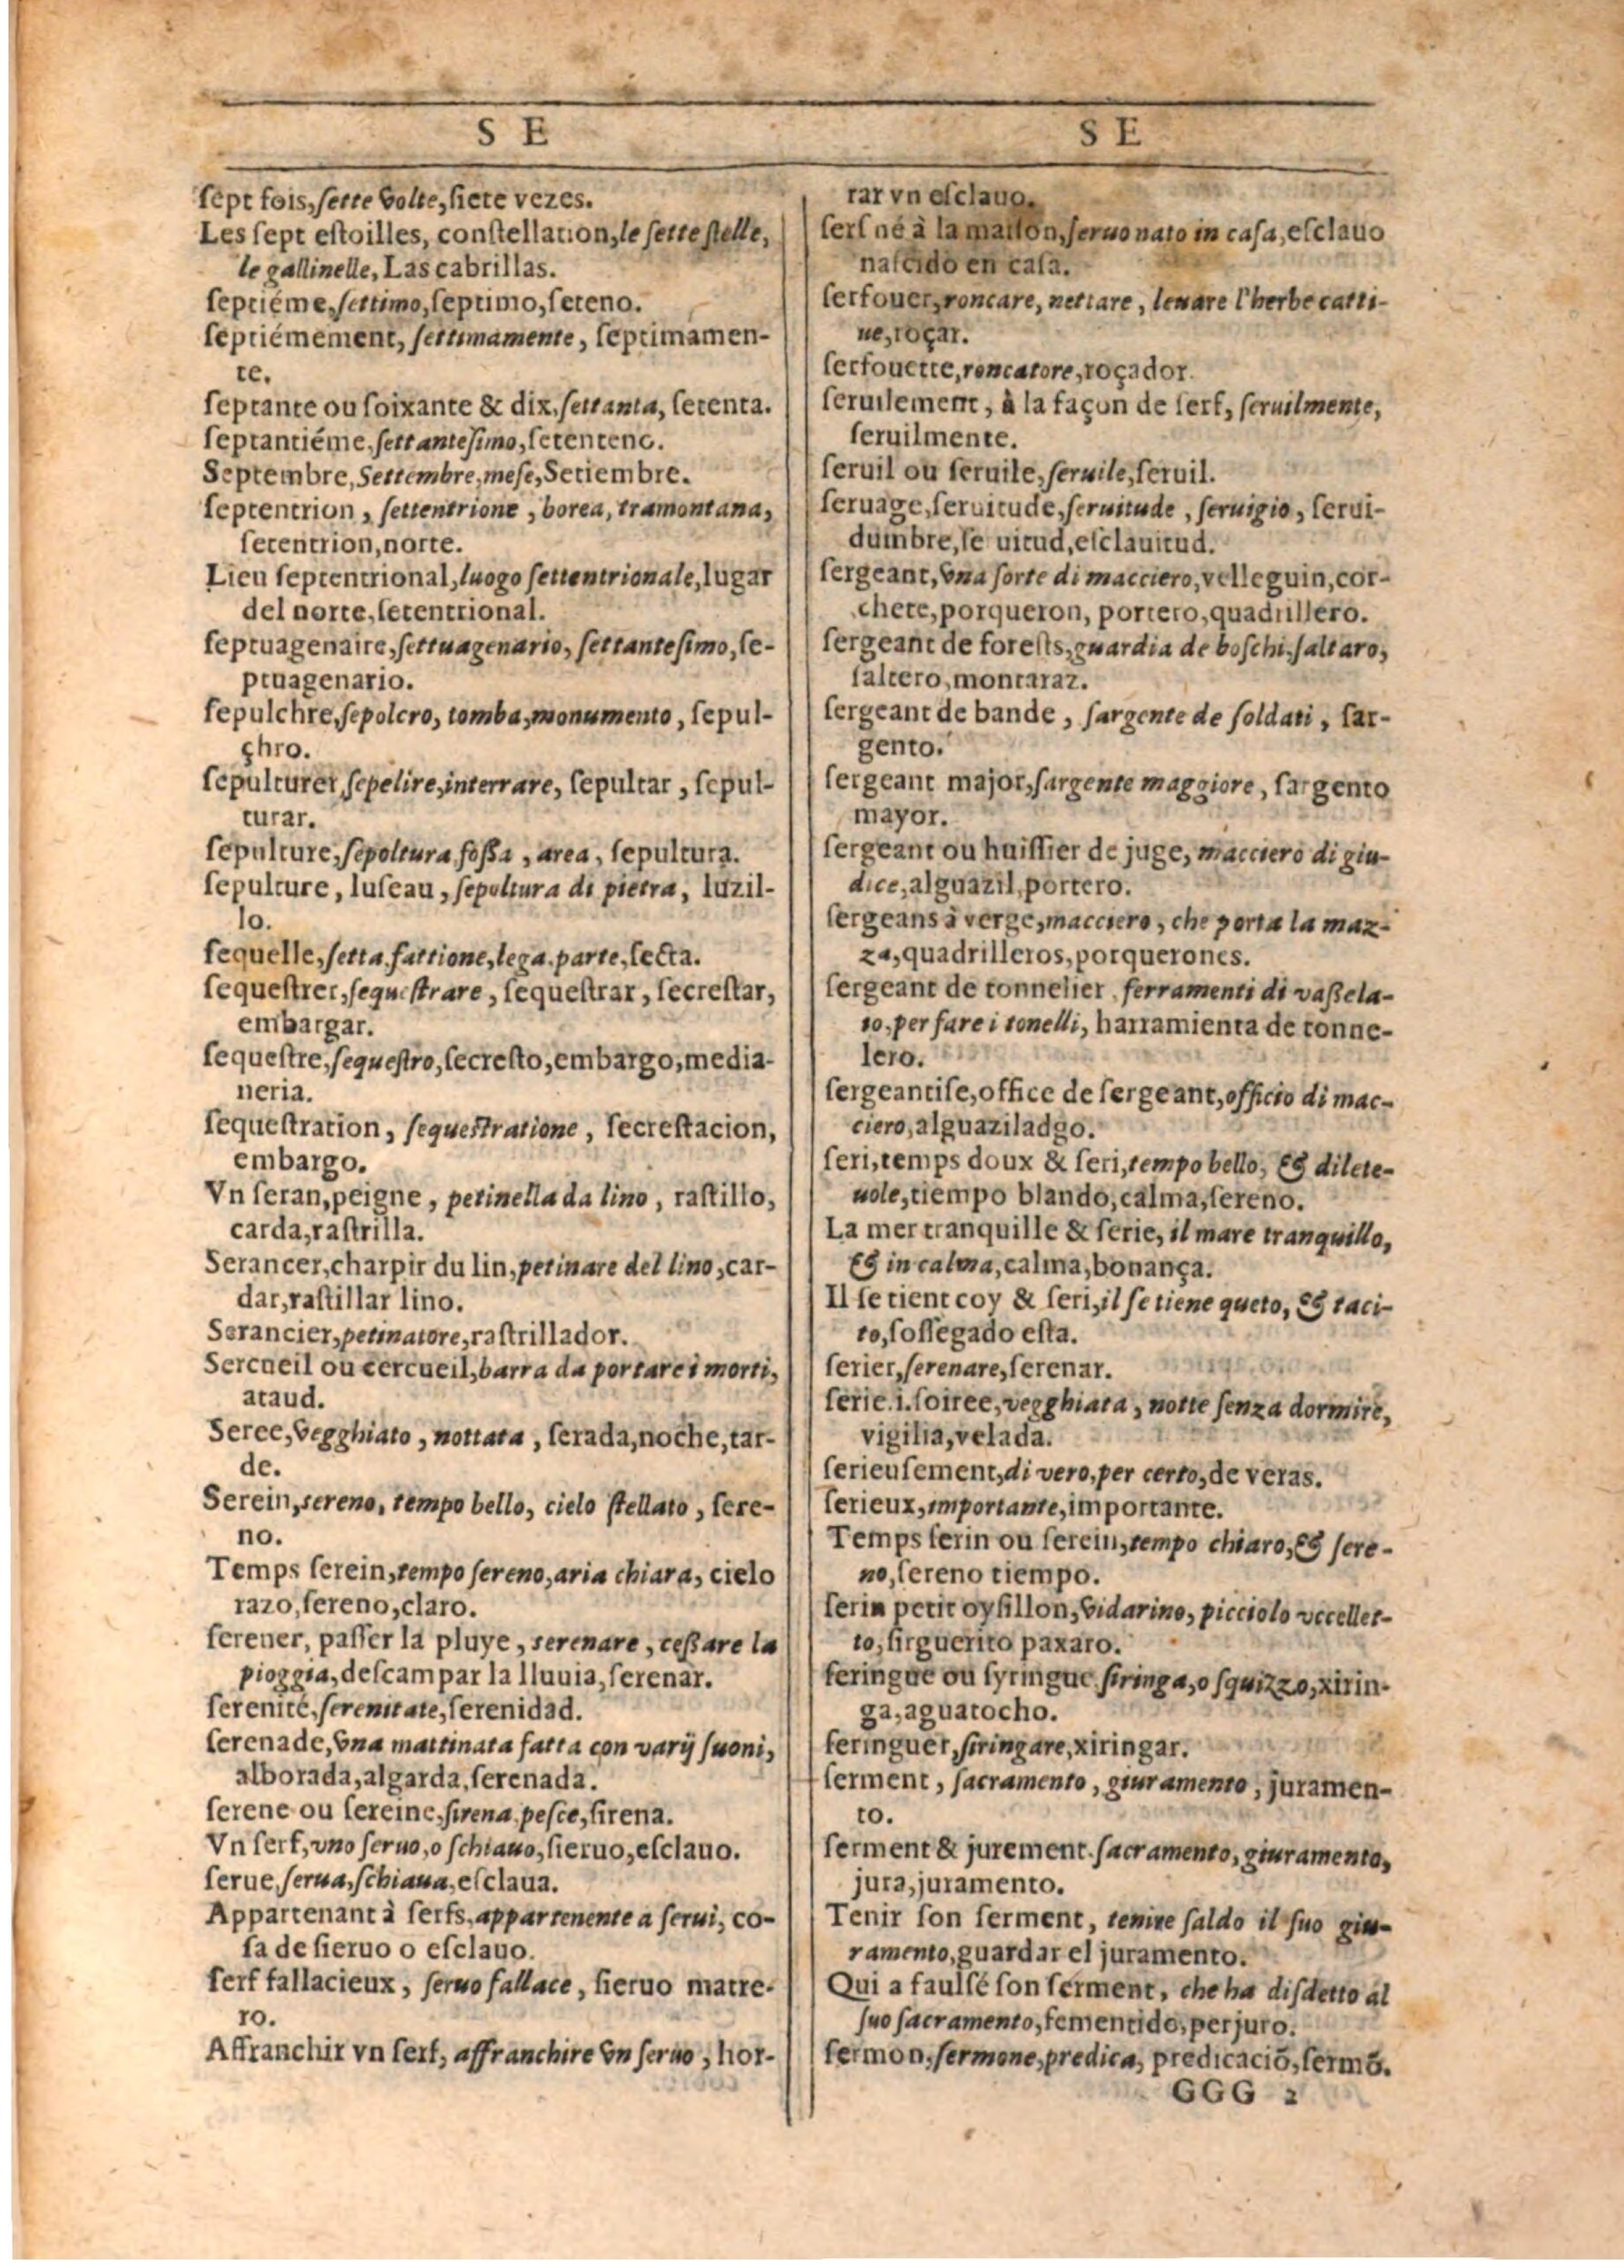 S E
ſept fois, ſette volte, ſiete vezes.
Les ſept eſtoilles, conſtellation, le ſette ſtelle,
le gallinelle, Las cabrillas.
ſeptiéme, ſettimo, ſeptimo, ſeteno.
ſeptiémement, ſettimamente, ſeptimamen-
te.
ſeptante ou ſoixante & dix, ſettanta, ſetenta.
ſeptantiéme, ſettanteſimo, ſetenteno.
Septembre, Settembre, meſe, Setiembre.
ſeptentrion, ſettentrione, borea, tramontana,
ſetentrion, norte.
Lieu ſeptentrional, luogo ſettentrionale, lugar
del norte, ſetentrional.
ſeptuagenaire, ſettuagenario, ſettanteſimo, ſe-
ptuagenario.
ſepulchre, ſepolcro, tomba, monumento, ſepul-
çhro.
ſepulturer, ſepelire, interrare, ſepultar, ſepul-
turar.
ſepulture, ſepoltura foſſa, area, ſepultura.
ſepulture, luſeau, ſepoltura di pietra, luzil-
lo.
ſequelle, ſetta, fattione, lega, parte, ſecta.
ſequeſtrer, ſequeſtrare, ſequeſtrar, ſecreſtar,
embargar.
ſequeſtre, ſequeſtro, ſecreſto, embargo, media-
neria.
ſequeſtration, ſequeſtratione, ſecreſtacion,
embargo.
Vn ſeran, peigne, petinella da lino, raſtillo,
carda, raſtrilla.
Serancer, charpir du lin, petinare del lino, car-
dar, raſtillar lino.
Serancier, petinatore, raſtrillador.
Sercueil ou cercueil, barra da portare i morti,
ataud.
Seree, vegghiato, nottata, ſerada, noche, tar-
de.
Serein, sereno, tempo bello, cielo ſtellato, ſere-
no.
Temps ſerein, tempo ſereno, aria chiara, cielo
razo, ſereno, claro.
ſerener, paſſer la pluye, serenare, ceſſare la
pioggia, deſcampar la lluuia, ſerenar.
ſerenité, ſerenitate, ſerenidad.
ſerenade, vna mattinata fatta con varij ſuoni,
alborada, algarda, ſerenada.
ſerene ou ſereine, ſirena, peſce, ſirena.
Vn ſerf, vno ſeruo, o ſchiauo, ſieruo, eſclauo.
ſerue, ſerua, ſchiaua, eſclaua.
Appartenant à ſerfs, appartenente a ſerui, co-
ſa de ſieruo o eſclauo.
ſerf fallacieux, ſeruo fallace, ſieruo matre-
ro.
Affranchir vn ſerf, affranchire vn ſeruo, hor-
S E
rar vn eſclauo.
ſerf né à la maiſon, ſeruo nato in caſa, eſclauo
naſcido en caſa.
ſerfouer, roncare, nettare, leuare l'herbe catti-
ue, roçar.
ſerfouette, roncatore, roçador.
ſeruilement, à la façon de ſerf, ſeruilmente,
ſeruilmente.
ſeruil ou ſeruile, ſeruile, ſeruil.
ſeruage, ſeruitude, ſeruitude, ſeruigio, ſerui-
dumbre, ſe uitud, eſclauitud.
ſergeant, vna ſorte di macciero, velleguin, cor-
chete, porqueron, portero, quadrillero.
ſergeant de foreſts, guardia de boſchi, ſaltaro,
ſaltero, montaraz.
ſergeant de bande, ſargente de ſoldati, ſar-
gento.
ſergeant major, ſargente maggiore, ſargento
mayor.
ſergeant ou huiſſier de juge, macciero di giu-
dice, alguazil, portero.
ſergeans à verge, macciero, che porta la maz-
za, quadrilleros, porquerones.
ſergeant de tonnelier, ferramenti di vaſſela-
to, per fare i tonelli, harramienta de tonne-
lero.
ſergeantiſe, office de ſergeant, officio di mac-
ciero, alguaziladgo.
ſeri, temps doux & ſeri, tempo bello, & dilete-
uole, tiempo blando, calma, ſereno.
La mer tranquille & ſerie, il mare tranquillo,
& in calma, calma, bonança.
Il ſe tient coy & ſeri, il ſe tiene queto, & taci-
to, ſoſſegado eſta.
ſerier, ſerenare, ſerenar.
ſerie. i. ſoiree, vegghiata, notte ſenza dormire,
vigilia, velada.
ſerieuſement, di vero, per certo, de veras.
ſerieux, importante, importante.
Temps ſerin ou ſerein, tempo chiaro, & ſere-
no, ſereno tiempo.
ſerin petit oyſillon, vidarino, picciolo vccellet-
to, ſirguerito paxaro.
ſeringue ou ſyringue, ſiringa, o ſquizzo, xirin-
ga, aguatocho.
ſeringuer, ſiringare, xiringar.
ſerment, ſacramento, giuramento, juramen-
to.
ſerment & jurement, ſacramento, giuramento,
jura, juramento.
Tenir ſon ſerment, tenire ſaldo il ſuo giu-
ramento, guardar el juramento.
Qui a faulſé ſon ſerment, che ha diſdetto al
ſuo ſacramento, fementido, perjuro.
ſermon, ſermone, predica, predicaciõ, ſermõ.
GGG 2